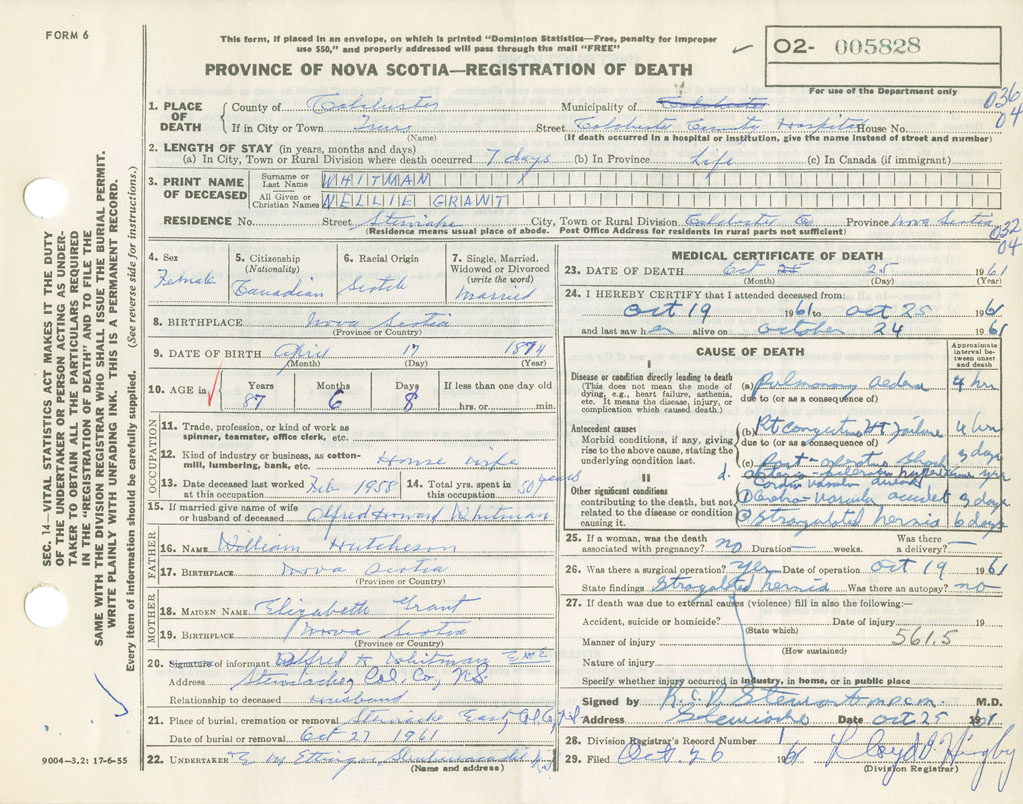 FORM 6
This form, if placed in an envelope, on which is printed "Dominion Statistics—Free, penalty for improper
use $50," and properly addressed will pass through the mail "FREE"
PROVINCE OF NOVA SCOTIA—REGISTRATION OF DEATH
O2- 005828
For use of the Department only
036
04
1. PLACE OF DEATH
County of Colchester Municipality of Colchester
If in City or Town Truro Street Colchester County Hospital House No.
(Name) (If death occurred in a hospital or institution, give the name instead of street and number)
2. LENGTH OF STAY (in years, months and days)
(a) In City, Town or Rural Division where death occurred 7 days (b) In Province Life (c) In Canada (if immigrant)
3. PRINT NAME OF DECEASED
Surname or Last Name WHITMAN
All Given or Christian Names NELLIE GRANT
RESIDENCE No. Street Stewiacke City, Town or Rural Division Colchester Co Province Nova Scotia
(Residence means usual place of abode. Post Office Address for residents in rural parts not sufficient)
032
04
4. Sex Female
5. Citizenship (Nationality) Canadian
6. Racial Origin Scotch
7. Single, Married, Widowed or Divorced (write the word) Married
8. BIRTHPLACE Nova Scotia
(Province or Country)
9. DATE OF BIRTH April 17 1874
(Month) (Day) (Year)
10. AGE in Years 87 Months 6 Days 8 If less than one day old hrs. or min.
OCCUPATION
11. Trade, profession, or kind of work as
spinner, teamster, office clerk, etc.
12. Kind of industry or business, as cotton-
mill, lumbering, bank, etc. House wife
13. Date deceased last worked at this occupation Feb 1958 14. Total yrs. spent in this occupation 50 years
15. If married give name of wife
or husband of deceased Alfred Howard Whitman
FATHER
16. NAME William Hutcheson
17. BIRTHPLACE Nova Scotia
(Province or Country)
MOTHER
18. MAIDEN NAME Elizabeth Grant
19. BIRTHPLACE Nova Scotia
(Province or Country)
20. Signature of informant Alfred H Whitman EmE
Address Stewiacke, Col. Co., N.S.
Relationship to deceased Husband
21. Place of burial, cremation or removal Stewiacke East, Col. Co., N.S
Date of burial or removal Oct 27 1961
22. UNDERTAKER E M Ettinger Shubenacadie N.S
(Name and address)
MEDICAL CERTIFICATE OF DEATH
23. DATE OF DEATH Oct 25 1961
(Month) (Day) (Year)
24. I HEREBY CERTIFY that I attended deceased from:
Oct 19 1961 to Oct 25 1961
and last saw her alive on October 24 1961
CAUSE OF DEATH
Approximate interval between onset and death
I
Disease or condition directly leading to death
(This does not mean the mode of
dying, e.g., heart failure, asthenia,
etc. It means the disease, injury, or
complication which caused death.)
(a) Pulmonary aedema 4 hrs
due to (or as a consequence of)
Antecedent causes
Morbid conditions, if any, giving
rise to the above cause, stating the
underlying condition last.
(b) Rt Congestive Ht Failure 4 hrs
due to (or as a consequence of)
(c) Post-operative Shock 3 days
d.
yrs
II
Other significant conditions
contributing to the death, but not
related to the disease or condition
causing it.
① Cerebro-Vascular accident 3 days
② Strangulated hernia 6 days
25. If a woman, was the death
associated with pregnancy? no Duration weeks. Was there a delivery?
26. Was there a surgical operation? yes Date of operation Oct 19 1961
State findings Strangulated hernia Was there an autopsy? no
27. If death was due to external causes (violence) fill in also the following:—
Accident, suicide or homicide? Date of injury 19
(State which)
Manner of injury 561.5
(How sustained)
Nature of injury
Specify whether injury occurred in industry, in home, or in public place
Signed by R. C. D. Stewart mpcm. M.D.
Address Stewiacke Date Oct 25 1961
28. Division Registrar's Record Number 1
29. Filed Oct. 26 1961 Lloyd D Higby
(Division Registrar)
SEC. 14—VITAL STATISTICS ACT MAKES IT THE DUTY
OF THE UNDERTAKER OR PERSON ACTING AS UNDER-
TAKER TO OBTAIN ALL THE PARTICULARS REQUIRED
IN THE "REGISTRATION OF DEATH" AND TO FILE THE
SAME WITH THE DIVISION REGISTRAR WHO SHALL ISSUE THE BURIAL PERMIT.
WRITE PLAINLY WITH UNFADING INK. THIS IS A PERMANENT RECORD.
Every item of information should be carefully supplied. (See reverse side for instructions.)
9004-3.2: 17-6-55